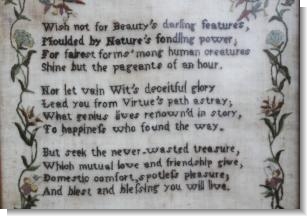 Wish not for Beauty's darling features,
Moulded by Nature's fondling power;
For fairest forms 'mong human creatures
Shine but the pageants of an hour.
Nor let vain Wit's deceitful glory
Lead you from Virtue's path astray;
What genius lives renown'd in story,
To happineſs who found the way.
But seek the never-wasted treasure,
Which mutual love and friendship give;
Domestic comfort, spotleſs pleasure;
And blest and bleſsing you will live.